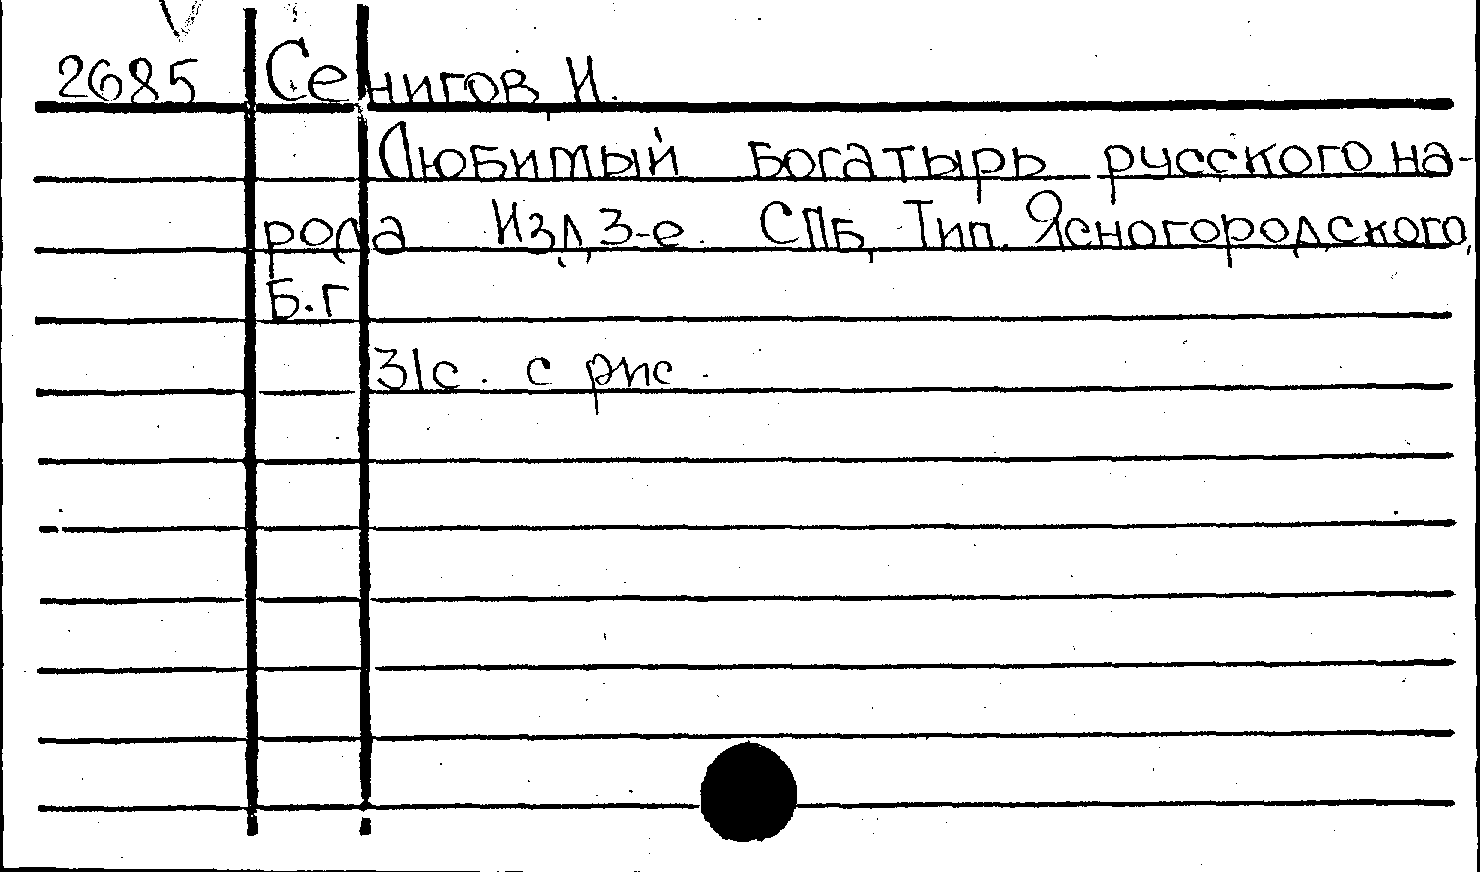 2685 Сенигов, И.
Любимый богатырь русского на-
рода Изд, 3-е. СПБ, Тип. Ясногородского,
Б.г
31с. с рис.